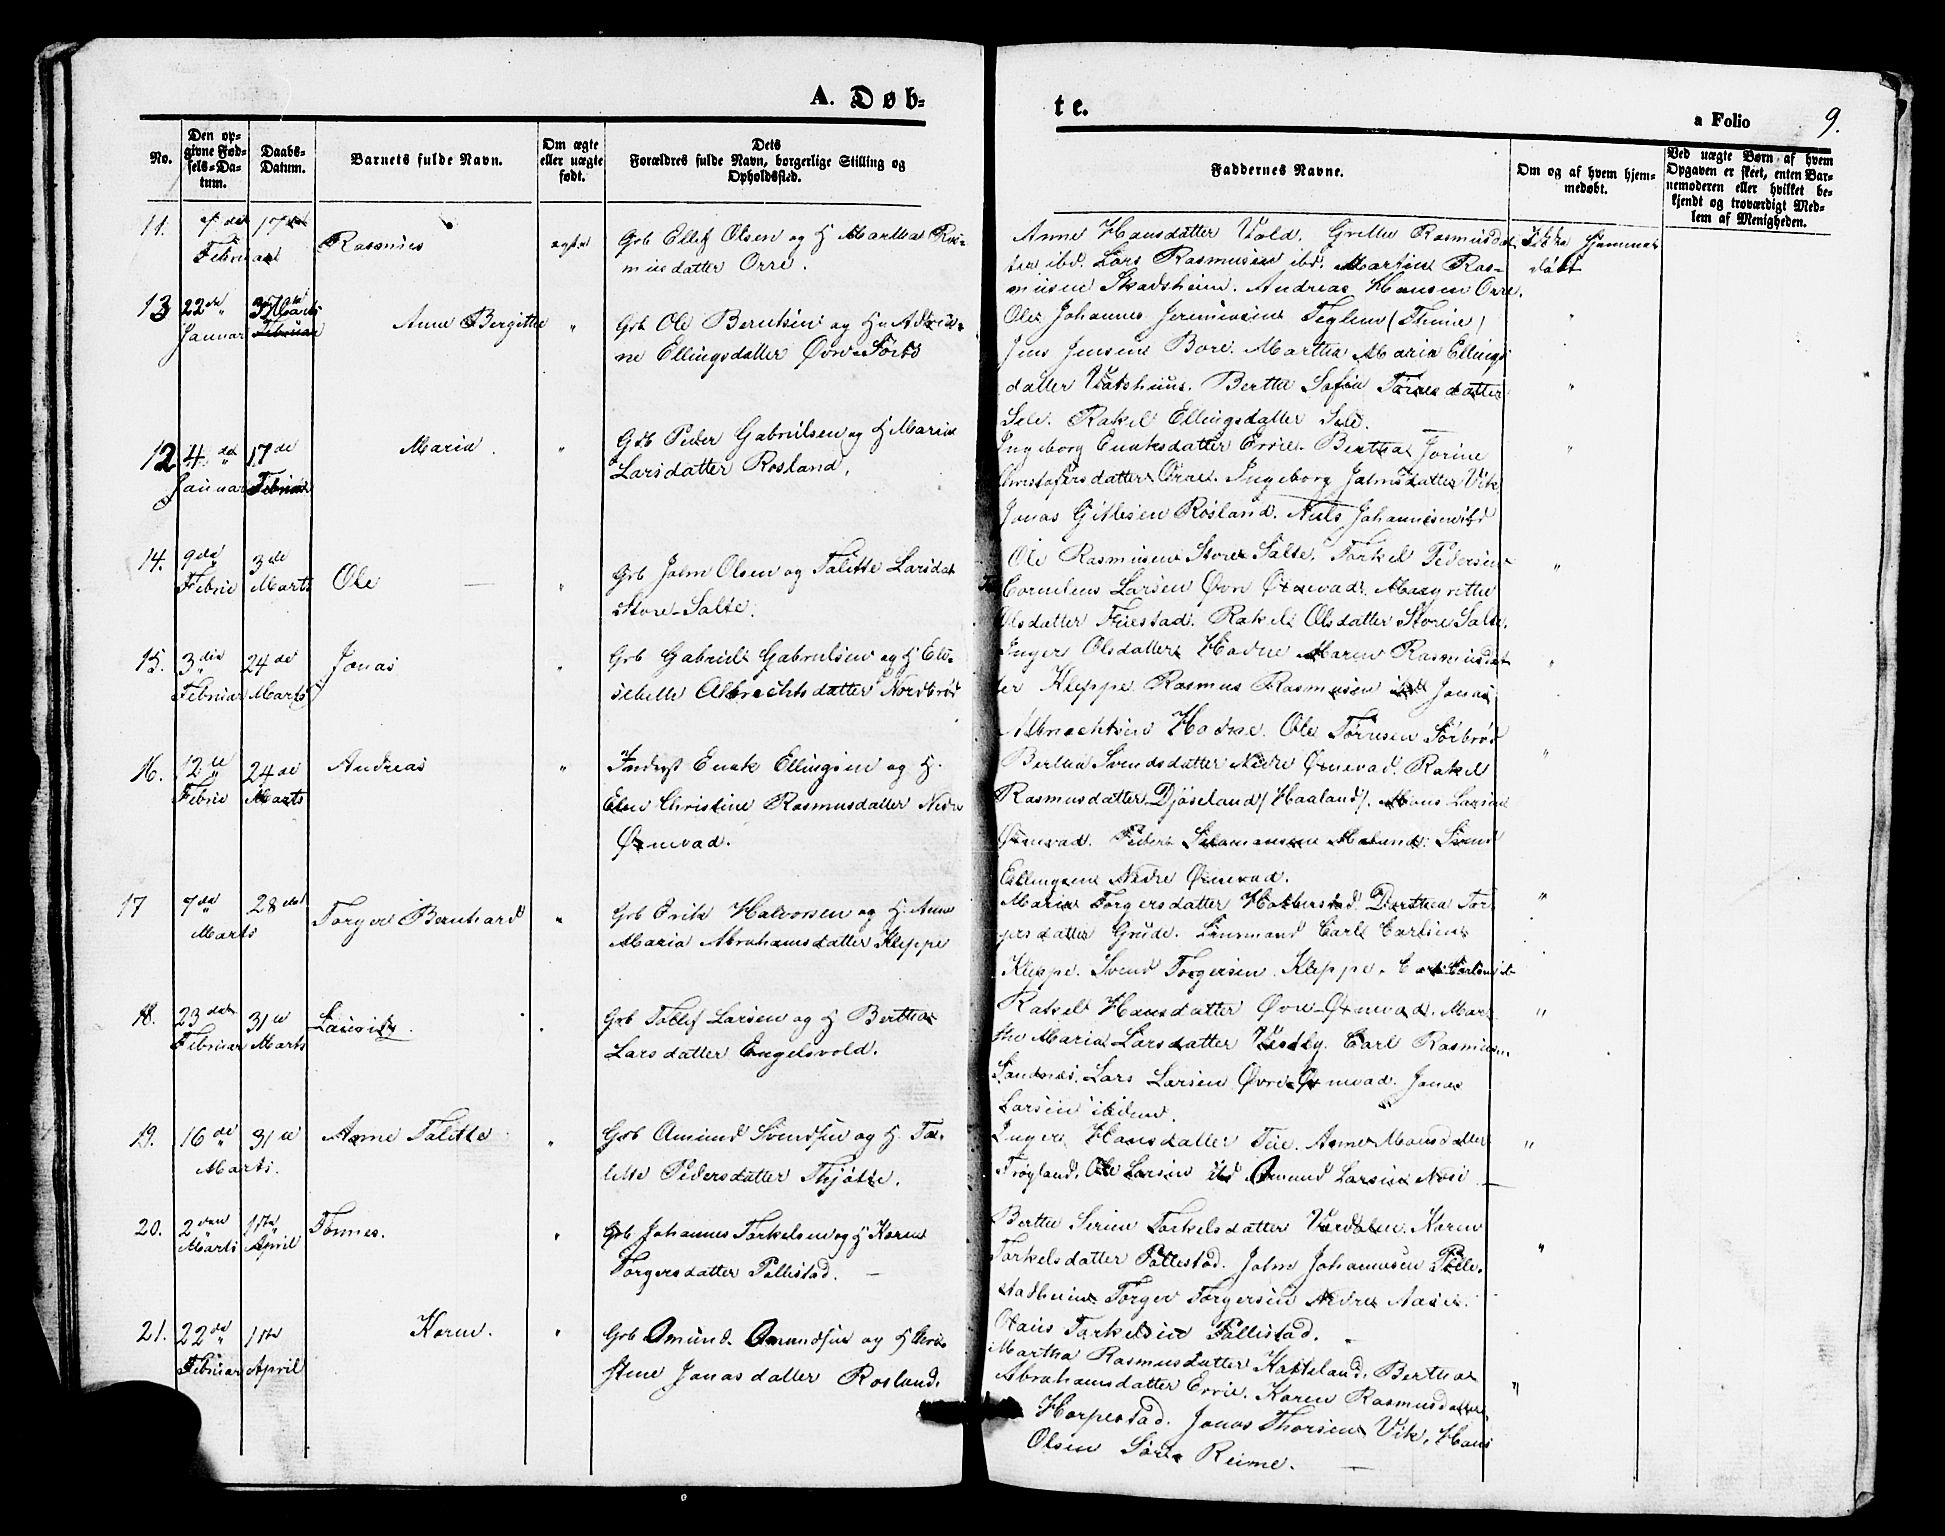 A. Døb-
te.
a Folio 9.
No.
Den op-
givne Fød-
sels-Da-
tum.
Daabs-
Datum.
Barnets fulde Navn.
Om ægte
eller uægte
født.
Dets
Forældres fulde Navn, borgerlige Stilling og
Opholdssted.
Faddernes Navne.
Om og af hvem hjem-
medøbt.
Ved uægte Børn af hvem
Opgaven er skeet, enten Bar-
nemoderen eller hvilket be-
kjendt og troværdigt Med-
lem af Menigheden.
11.
17de
Februar
Rasmus
ægte
Grb Ellef Olsen og H Martha Ras-
musdatter Orre.
Anne Hansdatter Vold. Grethe Rasmusdat-
ter ibd. Lars Rasmusen ibd. Martin Ras-
musen Skadsheim. Andreas Hansen Orre.
Ikke hjemme-
døbt
13 22de 3die Marts
Januar Februar
Anne Bergitte "
Grb Ole Berntsen og H. Adri-
ne Ellingsdatter Øvre-Sørbø
Ole Johannes Jeremiasen Teglen (Thime)
Jens Jensen Bore. Martha Maria Ellings-
datter Vatshuus. Bertha Sofie Tørresdatter
Sele. Rakel Ellingsdatter Sele.
12 4de 17de
Januar Februar
Maria. "
Grb Peder Gabrielsen og H Maria
Larsdatter Rosland.
Ingeborg Enoksdatter Ervie. Bertha Jorine
Christofersdatter Orre. Ingeborg Johnsdatter Vik
Jonas Gitlesen Rosland. Niels Johannesen ibd
14. 9de 3de
Febru Marts
Ole "
Grb John Olsen og Talette Larsdat
Store-Salte.
Ole Rasmusen Store Salte. Torkel Pedersen
Cornelius Larsen Øvre Øxnevad. Margrethe
Olsdatter Friestad. Rakel Olsdatter Store Salte.
15. 3die 24de
Februar Marts
Jonas "
Grb Gabriel Gabrielsen og H Eli-
sebethe Albrechtsdatter Nordbrød
Inger Olsdatter Hodne Maren Rasmusdat-
ter Kleppe. Rasmus Rasmusen ibd Jonas
Albrechtsen Hodne. Ole Tørresen Sørbrød
16. 12te 24de
Febru Marts
Andreas "
Inderst Enok Ellingsen og H.
Elen Christine Rasmusdatter Nedre
Øxnevad.
Bertha Svendsdatter Nedre Øxnevad. Rakel
Rasmusdatter Djøseland (Haaland). Mons Larsen
Øxnevad. Peder Salamonsen Malund. Svend
Ellingsen Nedre Øxnevad.
17 7de 28de
Marts
Torger Bernhard "
Grb Erik Halvorsen og H. Anne
Maria Abrahamsdatter Kleppe
Maria Torgersdatter Holberstad. Dorthea Tor-
gersdatter Grude. Lensmand Carl Carlsen
Kleppe. Svend Torgersen Kleppe. Carl Carlsen
18. 23de 31te
Februar Marts
Lauritz.
Grb Tollef Larsen og H Bertha
Larsdatter Engelsvold.
Rakel Hansdatter Øvre Øxnevad. Mar-
the Maria Larsdatter Vestly. Carl Rasmusen
Sandnæs. Lars Larsen Øvre Øxnevad. Jonas
Larsen ibidem.
19. 16de 31te
Marts.
Anne Talette "
Grb Omund Svendsen og H. Ta-
lette Pedersdatter Thjøtte.
Inger Hansdatter Tue. Anne Monsdatter
Frøyland. Ole Larsen ibd Omund Larsen Næse
20. 2den 1ste
Marts April
Tønnes. "
Grb Johannes Torkelsen og H Karen
Torgersdatter Pallestad.
Berthe Serine Torkelsdatter Vardalen. Karen
Torkelsdatter Pollestad. John Johannesen Tele-
stadheim. Torger Torgersen Nedre Aasen.
Olaus Torkelsen Pallestad.
21. 22de 1ste
Februar April
Karen. "
Grb Omund Omundsen og H Chri-
stine Jonasdatter Rosland.
Martha Rasmusdatter Kalleland. Bertha
Abrahamsdatter Ervie. Karen Rasmusdatter
Horpestad. Jonas Thorsen Vik. Hans
Olsen Søre Reime.